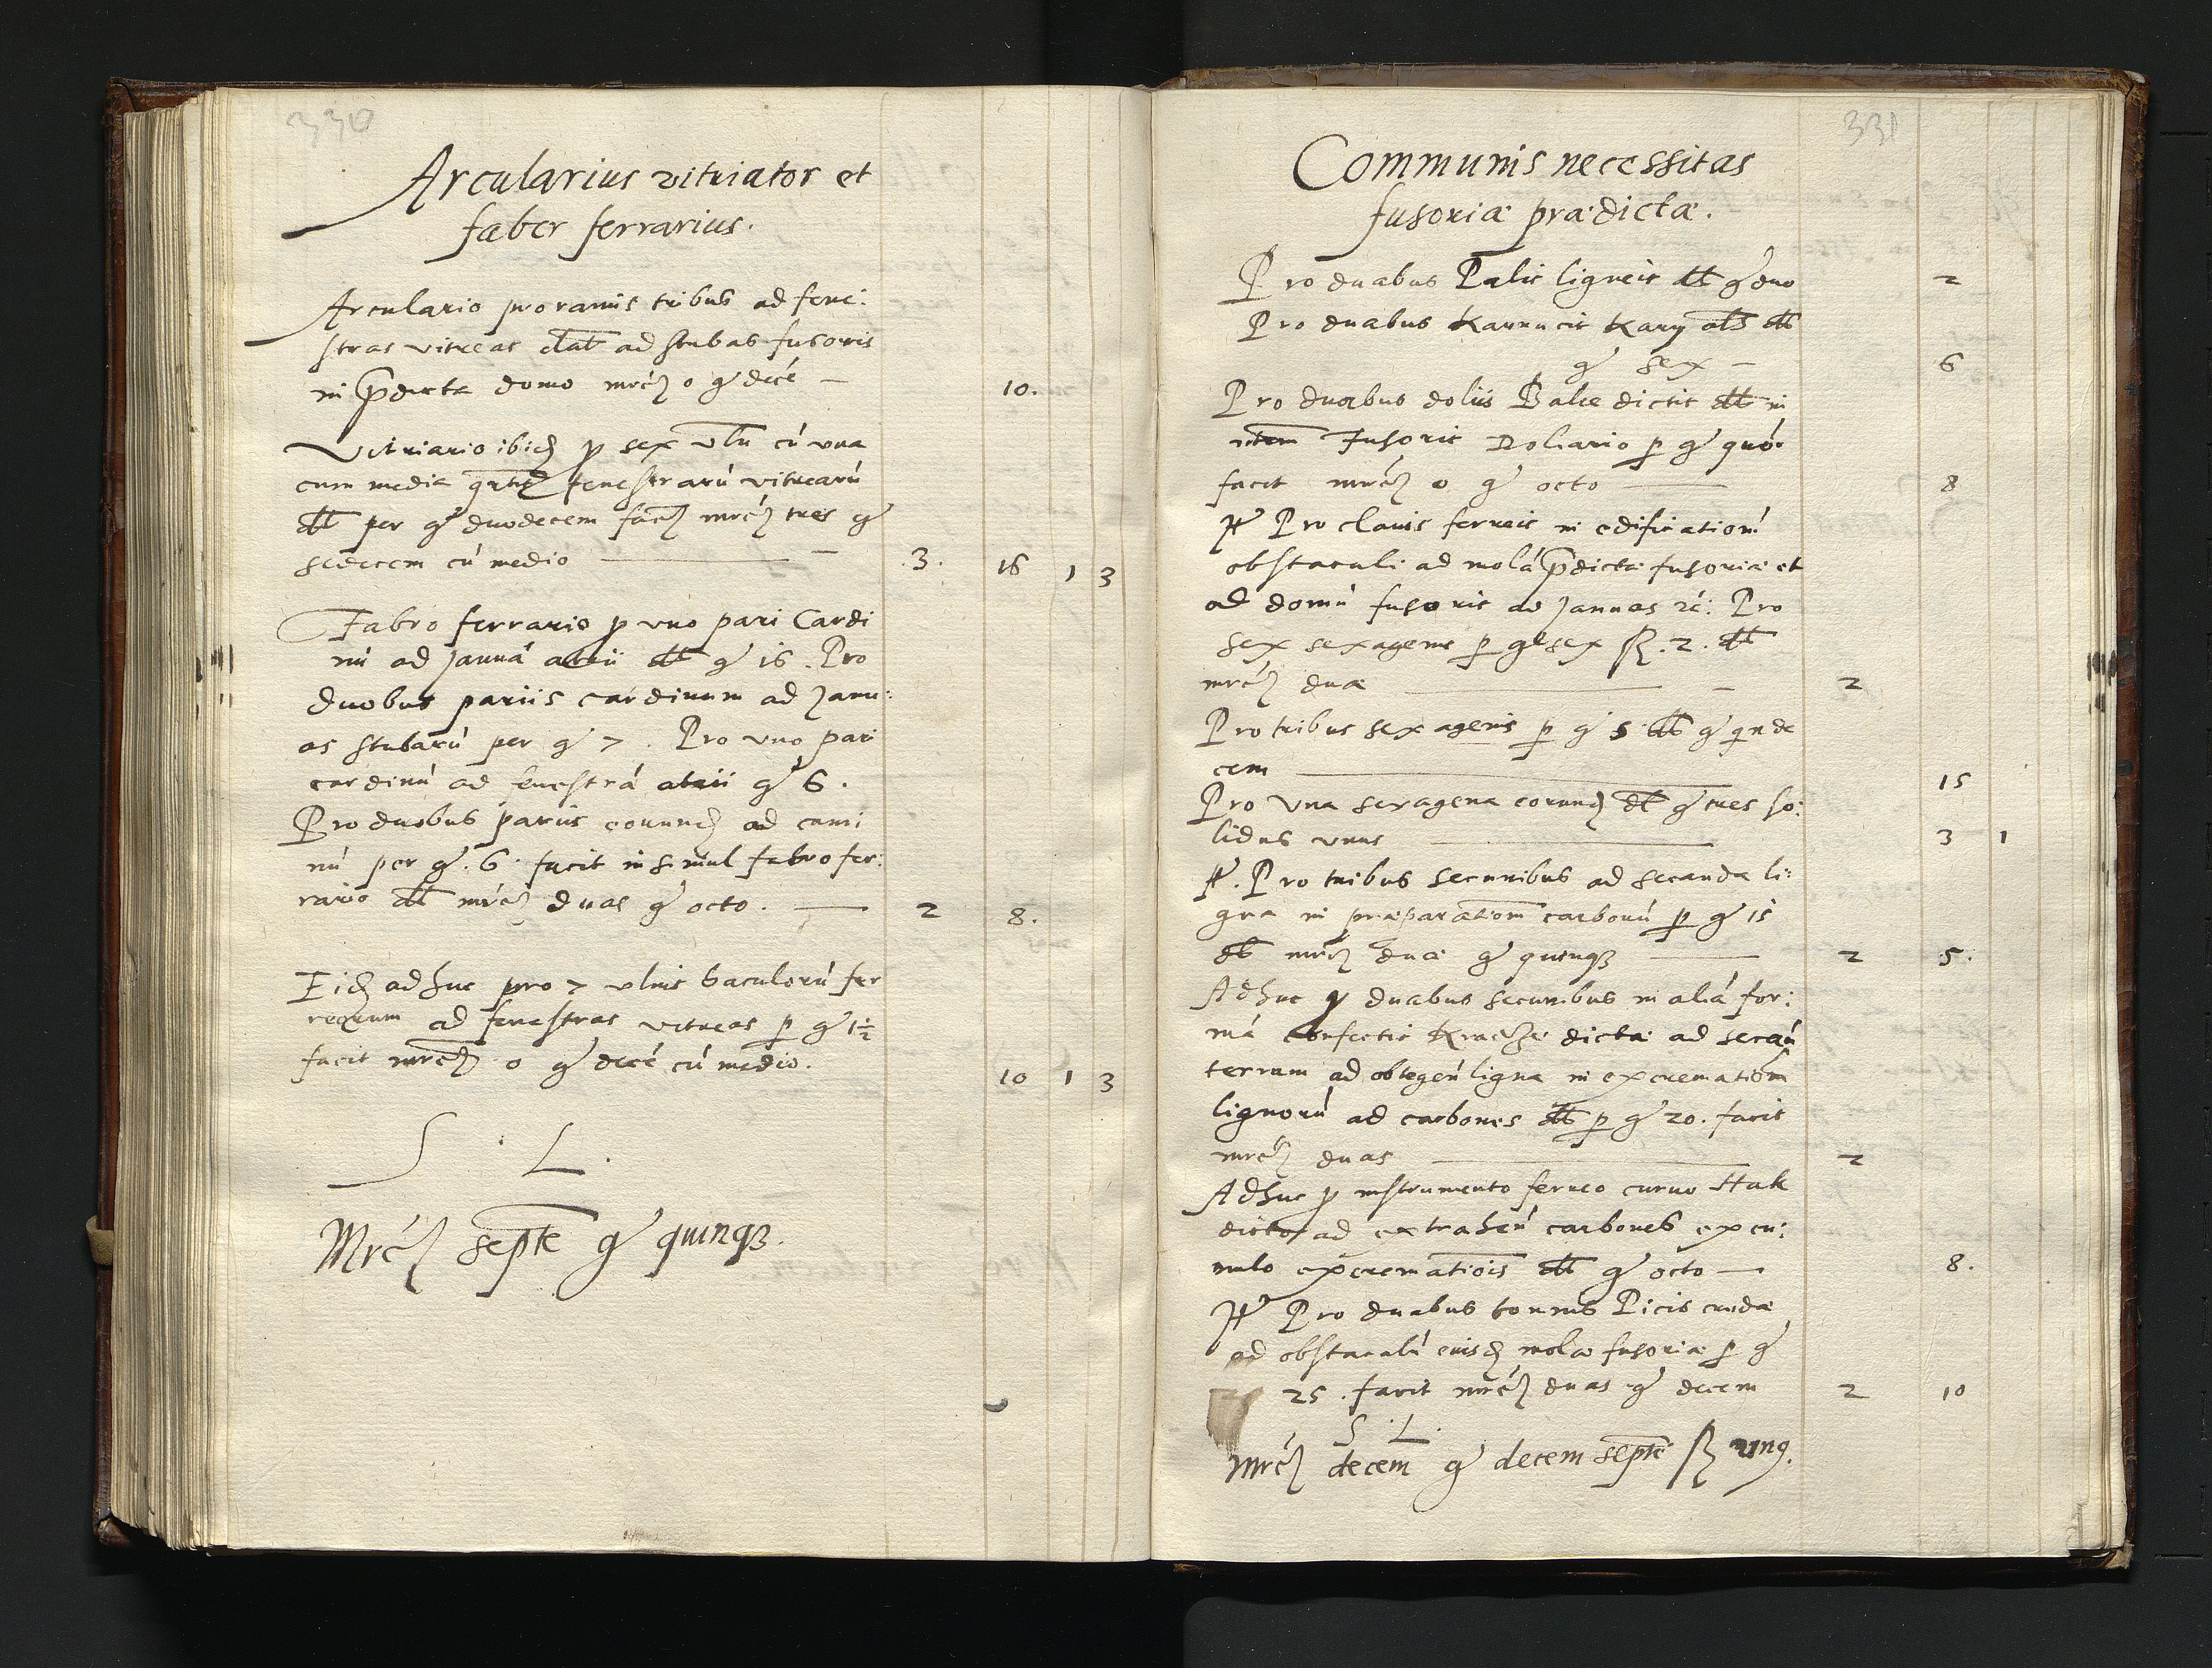 330
Arcularius vitriator et
faber ferrarius.
Arculario pro ramis tribus ad fene:
stras vitreas dat ad stubas fusoris
in pdicta domo mrc o g decé
10.
Vitriario ibid p sex uln cú una
cum media fenestrarú vitrearú
dt per g duodecem fac mrc tres g
sedecem cú medio
3. 16 1 3
Fabro ferrario p uno pari Cardi
nú ad januá atrii dt g 16. Pro
duobus pariis cardinum ad janu:
as stubarú per g 7. Pro uno pari
cardinú ad fenestrá atrii g 6.
Pro duobus pariis eorund ad cami
nú per g. 6. facit in simul fabro fer:
rario dt mrc duas g octo.
2 8.
Eid adhuc pro 7 ulnis baculorú fer
reorum ad fenestras vitreas p g 1½
facit mrc o g decé cú medio.
10 1 3
S. L.
Mrc septe g quinqз.
331
Communis necessitas
fusoriæ prædictæ.
Pro duabus Palis ligneis dt g duo
2
Pro duabus Karrucis Kary als dt
g sex
6
Pro duabus doliis Balie dictis dt in
Fusoris Doliario p g quó
facit mrc o g octo
8
It Pro clavis ferreis in edificationé
obstaculi ad molá pdictæ fusoriæ et
ad domú fusoris ad januas 2c: Pro
sex sexagenis p g sex ß. 2. dt
mrc duæ
2
Pro tribus sexagenis p g 5 dt g qnde
cem
15
Pro una sexagena eorund dt g tres so:
lidus unus
3 1
It. Pro tribus securibus ad secanda li:
gna in præparationem carbonú p g 15
dt mrc duæ g quinqз
2 5.
Adhuc p duabus securibus in aliá for:
má confectis dictæ ad secań
terram ad obtegeń ligna in excrematiom
lignorú ad carbones dt p g 20. facit
mrc duas
2
Adhuc p instrumento ferreo curvo Hak
dicto ad extraheń carbones ex cu:
mulo excremationis dt g octo
8.
It Pro duabus tonnis Picis crudæ
ad obstaculú eiusd molæ fusoriæ p g
25. facit mrc duas g decem
2 10
S. L.
Mrc decem g decem septe ß unꝯ.